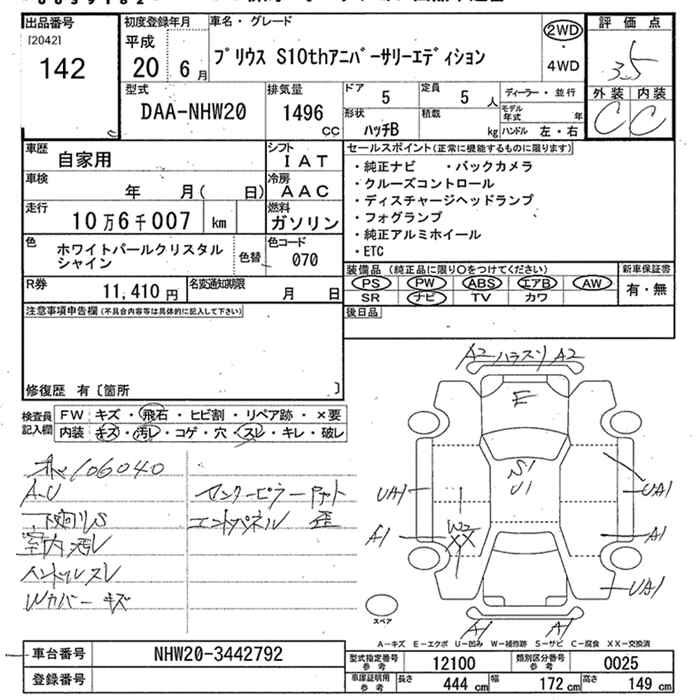 出品番号
[2042]
142
初度登録年月
平成
20 6月
車名・グレード
プリウス S10thアニバーサリーエディション
2WD
・
4WD
評価点
3.5
外装 内装
C C
型式
DAA-NHW20
排気量
1496
CC
ドア 5
定員 5 人
ディーラー・並行
形状
ハッチB
積載
kg
モデル年式 年
ハンドル 左・右
車歴
自家用
シフト
IAT
車検
年 月( 日)
冷房
AAC
走行
10万6千007 km
燃料
ガソリン
色
ホワイトパールクリスタル
シャイン
色替
色コード
070
R券
11,410 円
名変通知期限
月 日
セールスポイント(正常に機能するものに限ります)
・純正ナビ ・バックカメラ
・クルーズコントロール
・ディスチャージヘッドランプ
・フォグランプ
・純正アルミホイール
・ETC
装備品 (純正品に限り○をつけてください)
新車保証書
PS PW ABS エアB AW
有・無
SR ナビ TV カワ
後日品
注意事項申告欄(不具合内容等は具体的に記入して下さい)
修復歴 有〔箇所 〕
検査員
記入欄
FW キズ・飛石・ヒビ割・リペア跡・×要
内装 キズ・汚レ・コゲ・穴・スレ・キレ・破レ
106040
A.U
下廻りS
室内汚レ
ハンドルスレ
Wカバーキズ
センターピラー
エンドパネル 歪
A2 ハラスリ A2
E
S1
U1
UA1
UA1
A1
W2
XX
A1
UA1
A1
A1
スペア
A－キズ E－エクボ U－凹み W－補修跡 S－サビ C－腐食 XX－交換済
車台番号
NHW20-3442792
登録番号
型式指定番号
参考
12100
類別区分番号
参考
0025
車庫証明用
参考
長さ 444 cm
幅 172 cm
高さ 149 cm